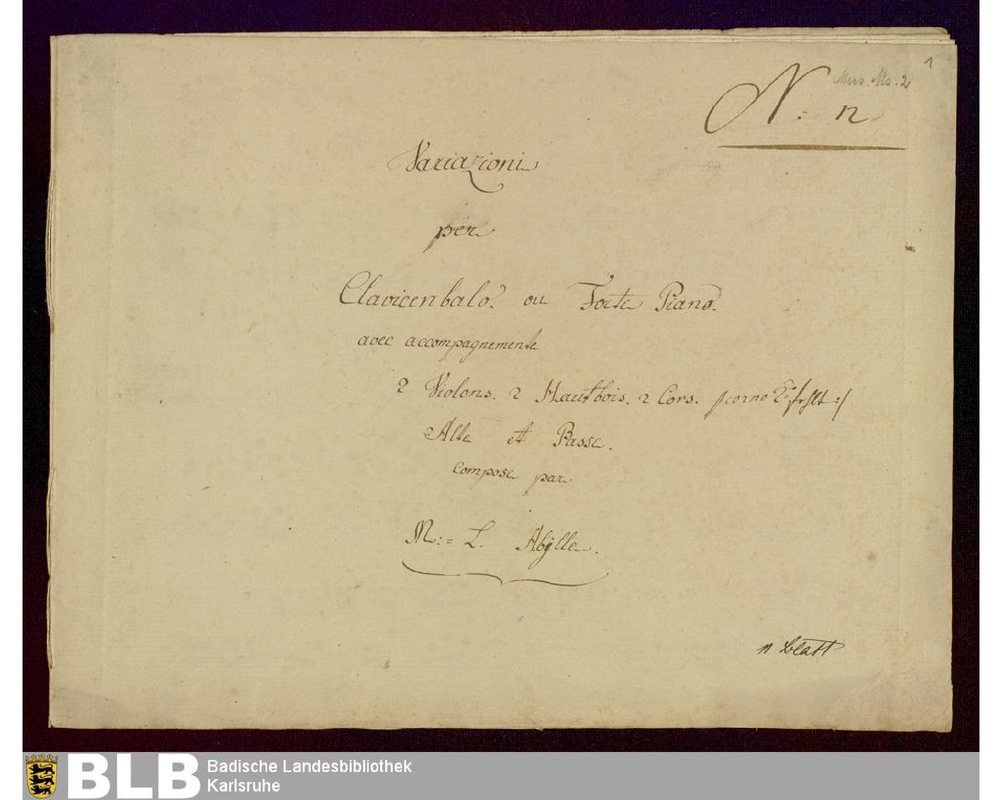 1
Mus. Ms. 2
N: 12
Variazioni
per
Clavicenbalo. ou Forte Piano.
avec accompagnemente
2 Violons. 2 Hautbois. 2 Cors. /:corno 2do fehlt:/
Alte et Basse.
compose par
M:= L. Abÿlle.
11 Blatt
BLB Badische Landesbibliothek
Karlsruhe